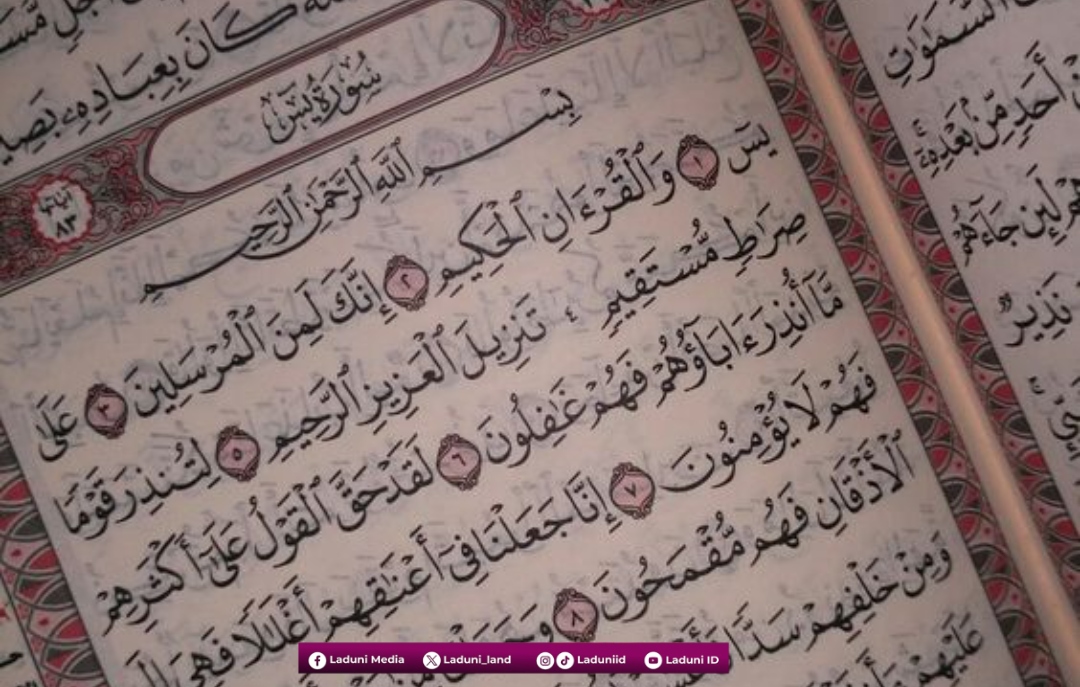 كَانَ بِعِبَادِهِۦ
ءَايَاتُهَا ٨٣
سُورَةُ يسٓ
بِسْمِ ٱللَّهِ ٱلرَّحْمَٰنِ ٱلرَّحِيمِ
يسٓ ١ وَٱلْقُرْءَانِ ٱلْحَكِيمِ ٢ إِنَّكَ لَمِنَ ٱلْمُرْسَلِينَ ٣ عَلَىٰ
صِرَٰطٍ مُّسْتَقِيمٍ ٤ تَنزِيلَ ٱلْعَزِيزِ ٱلرَّحِيمِ ٥ لِتُنذِرَ قَوْمًا
مَّآ أُنذِرَ ءَابَآؤُهُمْ فَهُمْ غَٰفِلُونَ ٦ لَقَدْ حَقَّ ٱلْقَوْلُ عَلَىٰٓ أَكْثَرِهِمْ
فَهُمْ لَا يُؤْمِنُونَ ٧ إِنَّا جَعَلْنَا فِىٓ أَعْنَٰقِهِمْ أَغْلَٰلًا فَهِىَ إِلَى
ٱلْأَذْقَانِ فَهُم مُّقْمَحُونَ ٨
وَمِنْ خَلْفِهِمْ سَدًّا
عَلَيْهِمْ
ٱلسَّمَٰوَٰتِ
أَحَدٍ مِّنۢ بَعْدِهِۦٓ
لَئِن جَآءَهُمْ
نَذِيرٌ
Laduni Media Laduni_land Laduniid Laduni ID